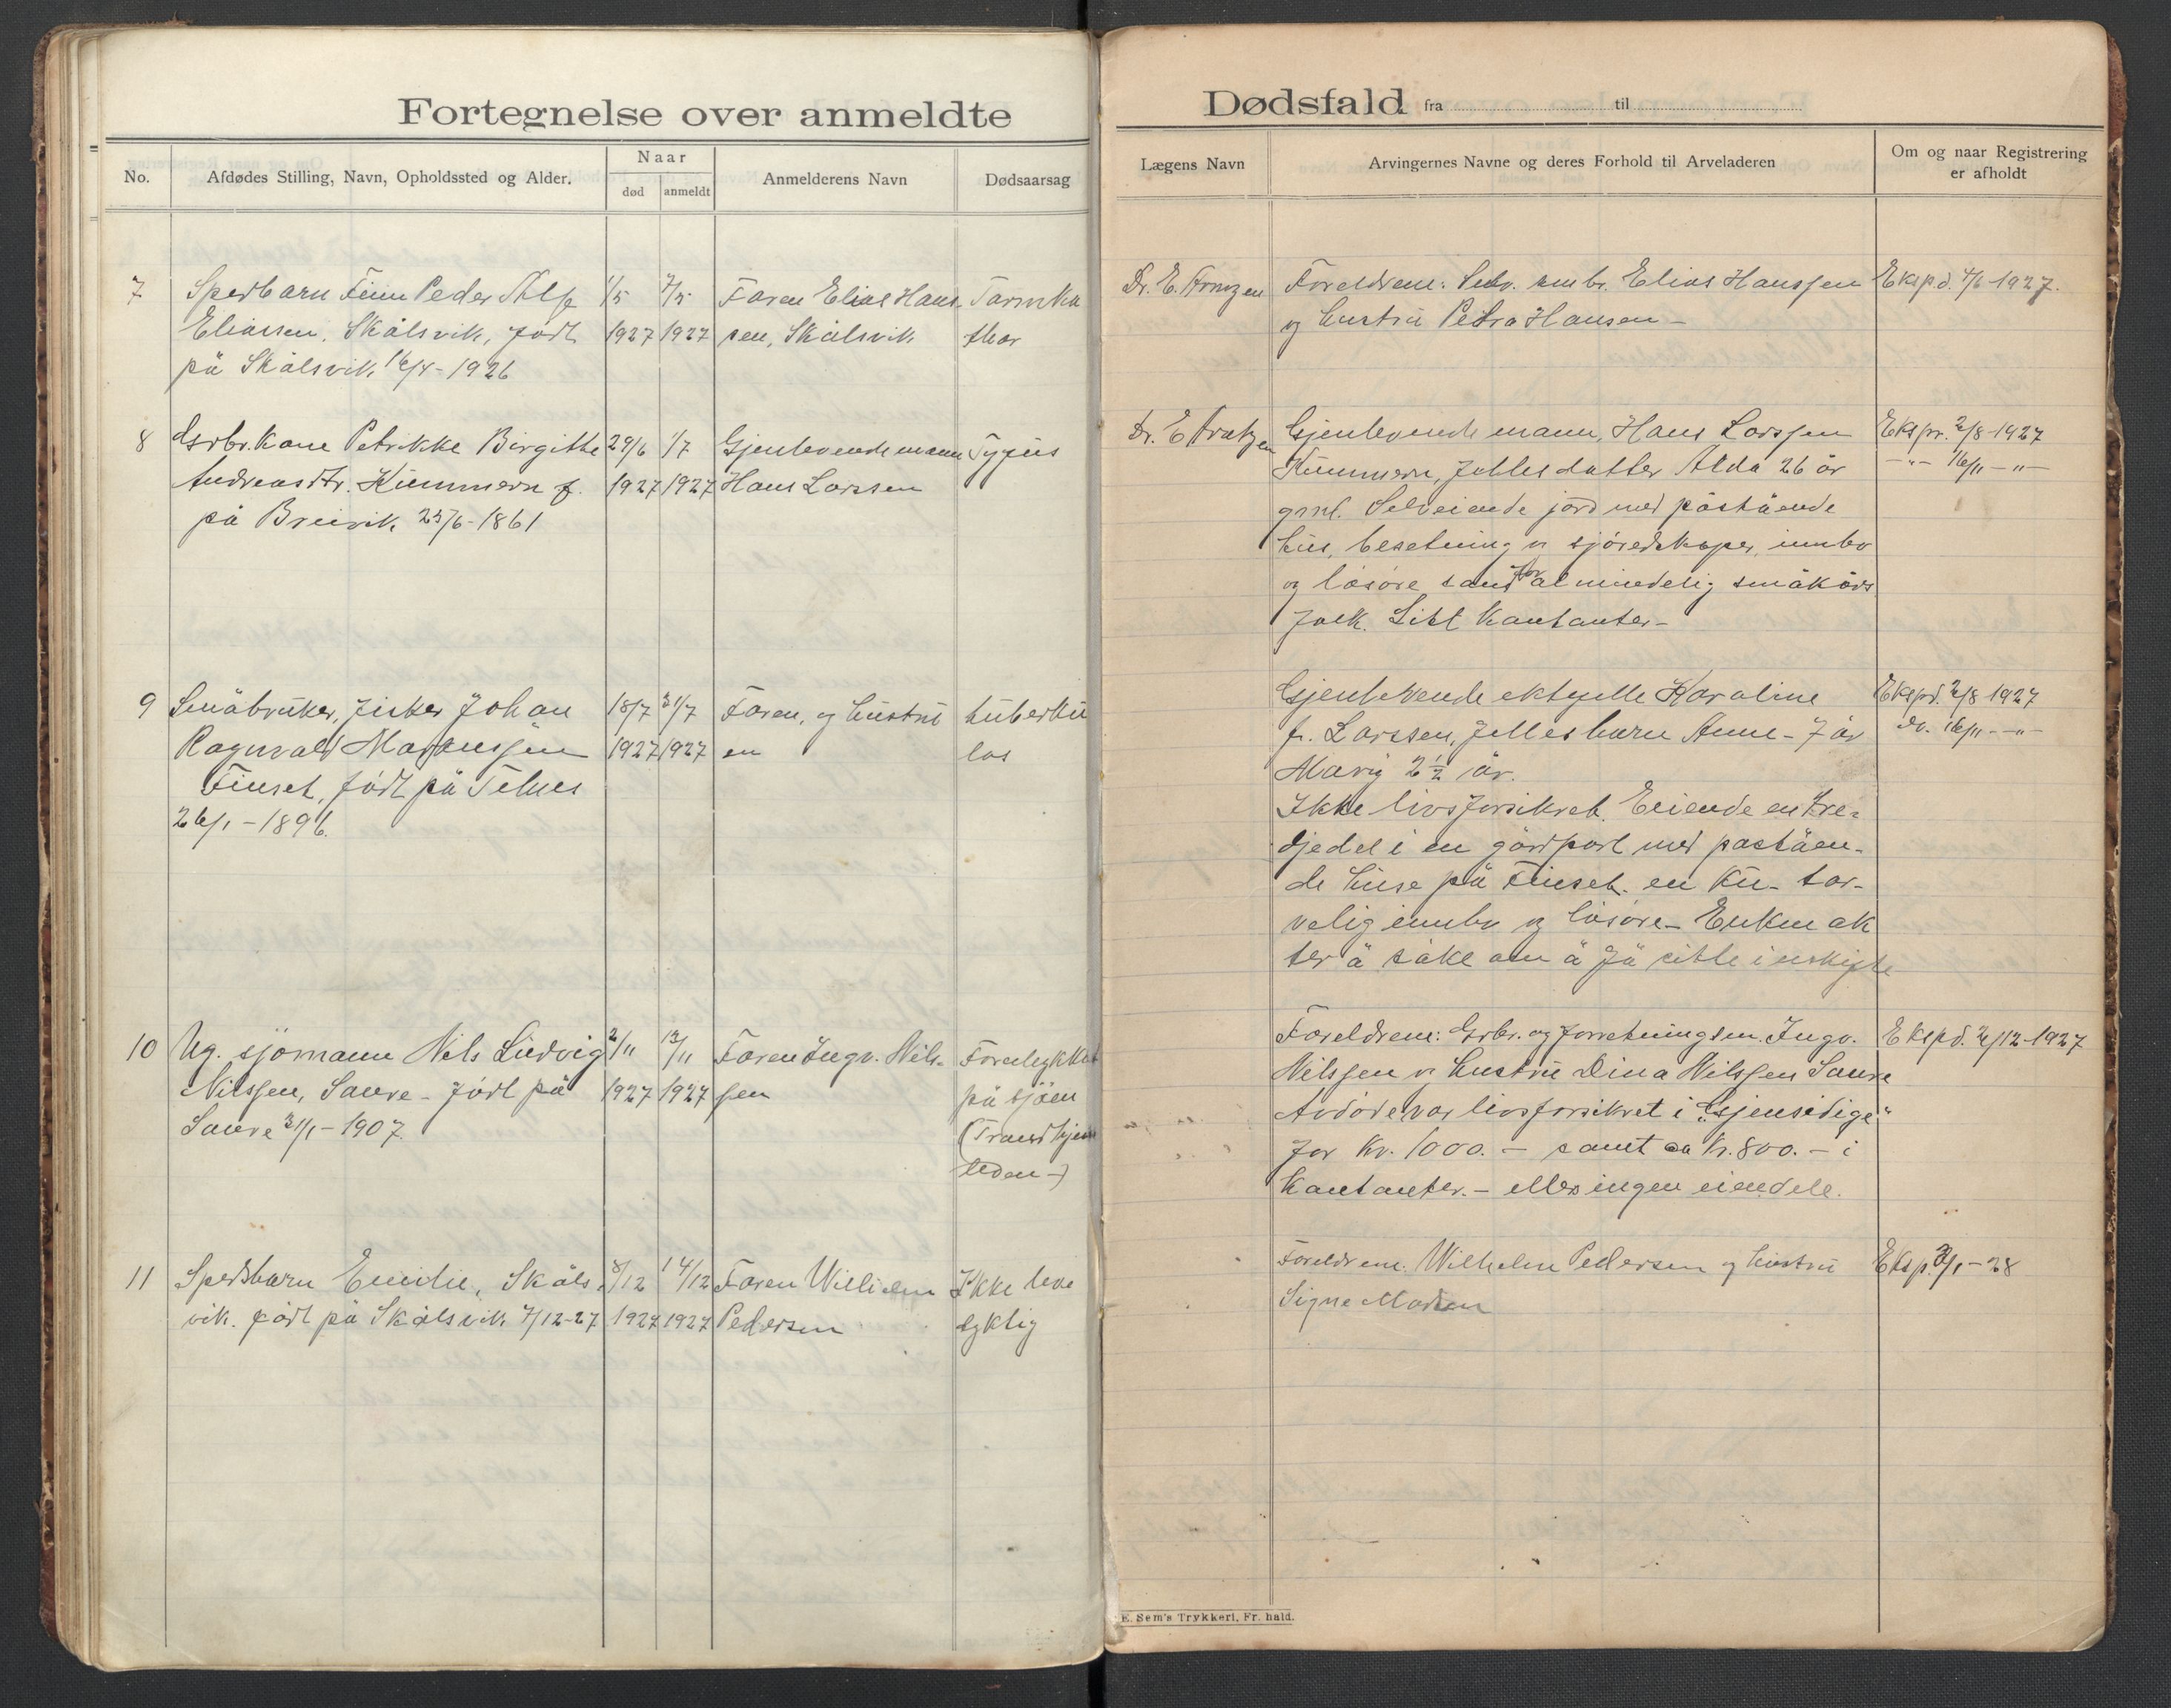 Fortegnelse over anmeldte
No.
Afdødes Stilling, Navn, Opholdssted og Alder.
Naar
død
anmeldt
Anmelderens Navn
Dødsaarsag
7
Spedbarn Finn Peder
Eliassen, Skålsvik, født
på Skålsvik 16/4 - 1926
1/5
1927
7/5
1927
Faren Elias Hans-
sen, Skålsvik
Tarmka
thar
8
Gsrbr. kone Petrikke Birgitte
Andreasdtr. Kummern f.
på Breivik 25/6 - 1861
29/6
1927
1/7
1927
Gjenlevende mann
Hans Larssen
Tyfus
9
Småbruker, fisker Johan
Ragnvald
Finset, født på
26/1 - 1896.
18/7
1927
21/7
1927
Faren, og hustru
en
tuberku
los
10
Ug. sjømann Nils Ludvig
Nilssen, Saure - født på
Saure 21/1 - 1907.
2/11
1927
13/11
1927
Faren Ingv. Nils-
sen
Forulykket
på sjøen
(Trondhjems
leden -)
11
Spedbarn Emilie, Skåls-
vik. født på Skålsvik 7/12-27
8/12
1927
14/12
1927
Faren Wilhelm
Pedersen
Ikke leve
dyktig
Dødsfald fra til
Lægens Navn
Arvingernes Navne og deres Forhold til Arveladeren
Om og naar Registrering
er afholdt
Dr. E. Arntzen
Foreldrene: Elias Hanssen
og hustru Petra Hansen -
Ekspd. 7/6 1927.
Dr. E Arntzen
Gjenlevende mann, Hans Larssen
Kummern, felles datter Alda 26 år
gml. Selveiende jord med påstående
hus, besetning og sjøredskaper, innbo
og løsøre som for almindelig småkårs
folk. Litt kontanter -
Ekspr. 2/8 1927
- " - 16/11 - " -
Gjenlevende ektefelle Karoline
f. Larssen, felles barn Anne - 7 år
2 ½ år.
Ikke livsforsikret. Eiende en tre-
djedel i en gårdpart med påståen-
de huse på Finset. en ku - tar-
velig innbo og løsøre - Enken ak
ter å søke om å få sitte i uskifte
Ekspd. 2/8 1927
do. 16/11 - " -
Foreldrene: Gsrbr. og forretningsm. Ingv.
Nilssen og hustru Dina Nilssen Saure
Avdøde var livsforsikret i "Gjensidige"
for kr. 1000. - samt ca kr. 800. - i
kontanter. - ellers ingen eiendele.
Ekspd. 2/12 - 1927
Foreldrene: Wilhelm Pedersen og hustru
Signe
Eksp. 2/1 - 28
E. Sem's Trykkeri, Fr. hald.